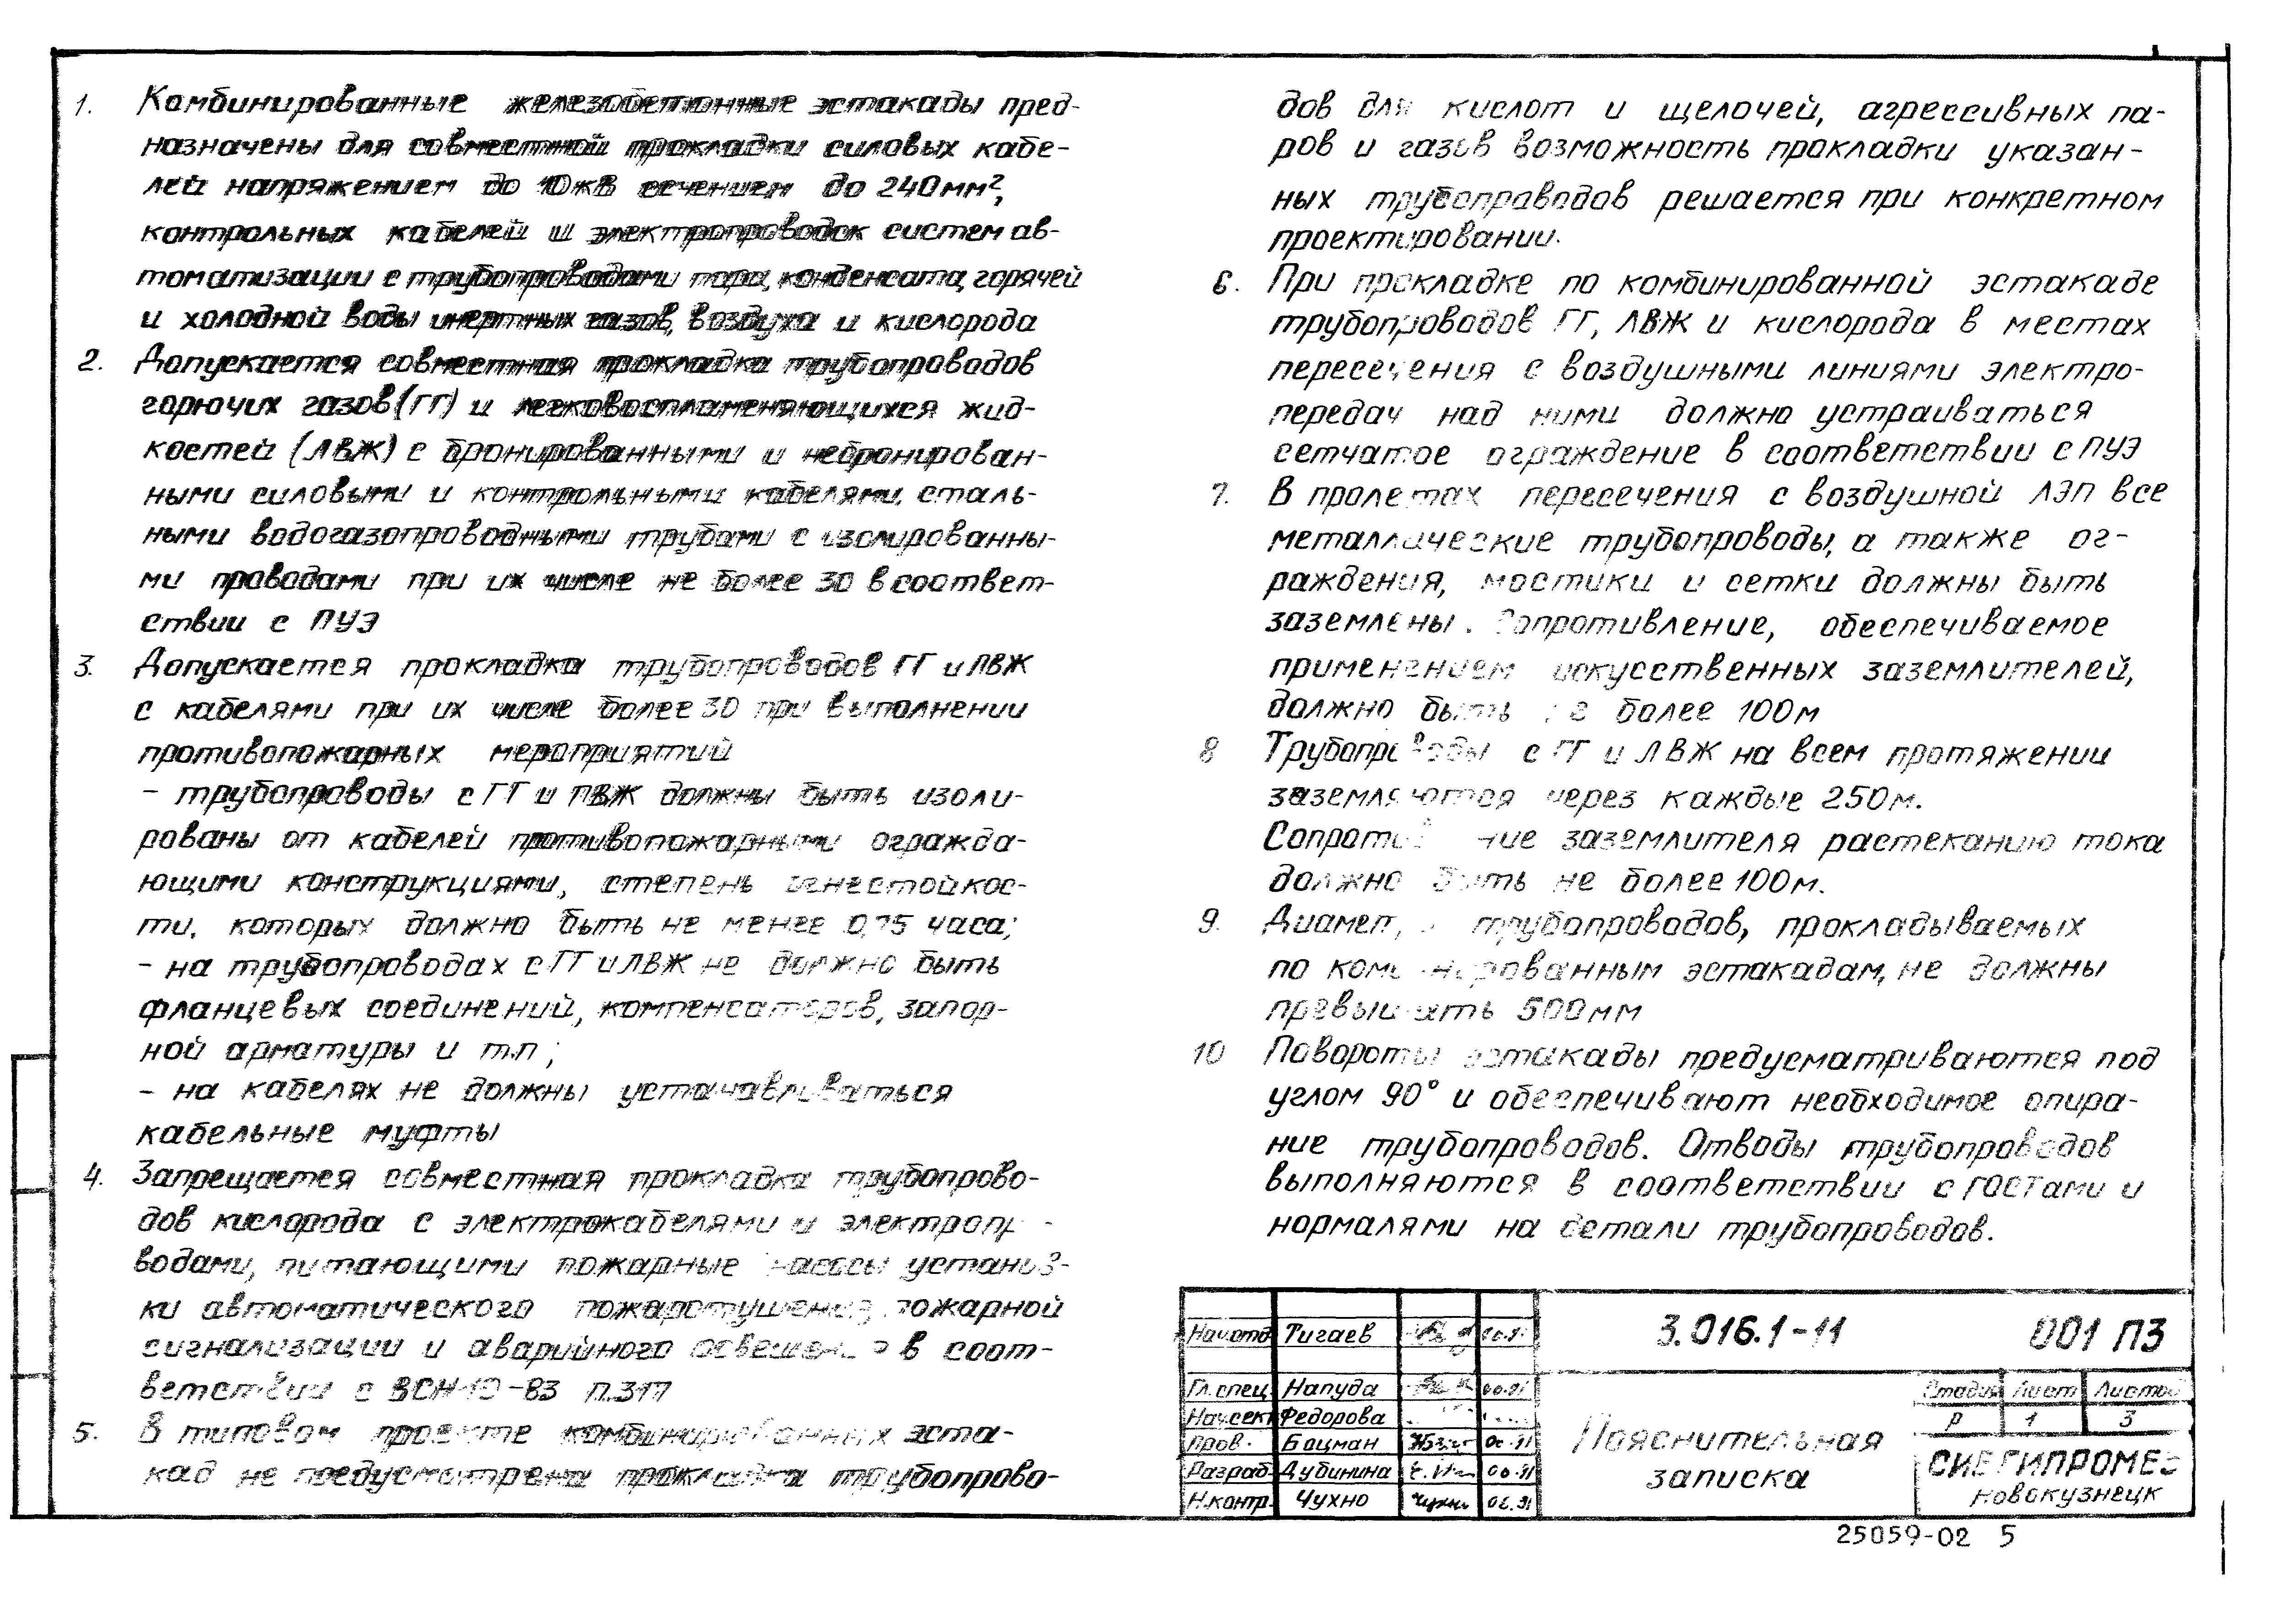 1. Комбинированные железобетонные эстакады пред-
назначены для совместной прокладки силовых кабе-
лей напряжением до 10кВ сечением до 240мм²,
контрольных кабелей и электропроводок систем ав-
томатизации с трубопроводами пара, конденсата, горячей
и холодной воды инертных газов, воздуха и кислорода
2. Допускается совместная прокладка трубопроводов
горючих газов (ГГ) и легковоспламеняющихся жид-
костей (ЛВЖ) с бронированными и небронирован-
ными силовыми и контрольными кабелями, сталь-
ными водогазопроводными трубами с изолированны-
ми проводами при их числе не более 30 в соответ-
ствии с ПУЭ
3. Допускается прокладка трубопроводов ГГ и ЛВЖ
с кабелями при их числе более 30 при выполнении
противопожарных мероприятий
- трубопроводы с ГГ и ЛВЖ должны быть изоли-
рованы от кабелей противопожарными огражда-
ющими конструкциями, степень огнестойкос-
ти, которых должно быть не менее 0,75 часа;
- на трубопроводах с ГГ и ЛВЖ не должно быть
фланцевых соединений, компенсаторов, запор-
ной арматуры и т.п;
- на кабелях не должны устанавливаться
кабельные муфты
4. Запрещается совместная прокладка трубопрово-
дов кислорода с электрокабелями и электропро-
водами, питающими пожарные насосы установ-
ки автоматического пожаротушения, пожарной
сигнализации и аварийного освещения в соот-
ветствии с ВСН 10-83 п.317
5. В типовом проекте комбинированных эста-
кад не предусмотрена прокладка трубопрово-
дов для кислот и щелочей, агрессивных па-
ров и газов возможность прокладки указан-
ных трубопроводов решается при конкретном
проектировании.
6. При прокладке по комбинированной эстакаде
трубопроводов ГГ, ЛВЖ и кислорода в местах
пересечения с воздушными линиями электро-
передач над ними должно устраиваться
сетчатое ограждение в соответствии с ПУЭ
7. В пролетах пересечения с воздушной ЛЭП все
металлические трубопроводы, а также ог-
раждения, мостики и сетки должны быть
заземлены. Сопротивление, обеспечиваемое
применением искусственных заземлителей,
должно быть не более 100м
8 Трубопроводы с ГГ и ЛВЖ на всем протяжении
заземляются через каждые 250м.
Сопротивление заземлителя растеканию тока
должно быть не более 100м.
9. Диаметр трубопроводов, прокладываемых
по комбинированным эстакадам, не должны
превышать 500мм
10 Повороты эстакады предусматриваются под
углом 90° и обеспечивают необходимое опира-
ние трубопроводов. Отводы трубопроводов
выполняются в соответствии с ГОСТами и
нормалями на детали трубопроводов.
Нач.отд Тигаев
Гл.спец. Напуда
Нач.сект Федорова
Пров. Бацман 06.91
Разраб. Дубинина 06.91
Н.контр. Чухно Чухно 06.91
3.016.1-11 001 ПЗ
Пояснительная
записка
Стадия Лист Листов
Р 1 3
СИБГИПРОМЕЗ
Новокузнецк
25059-02 5